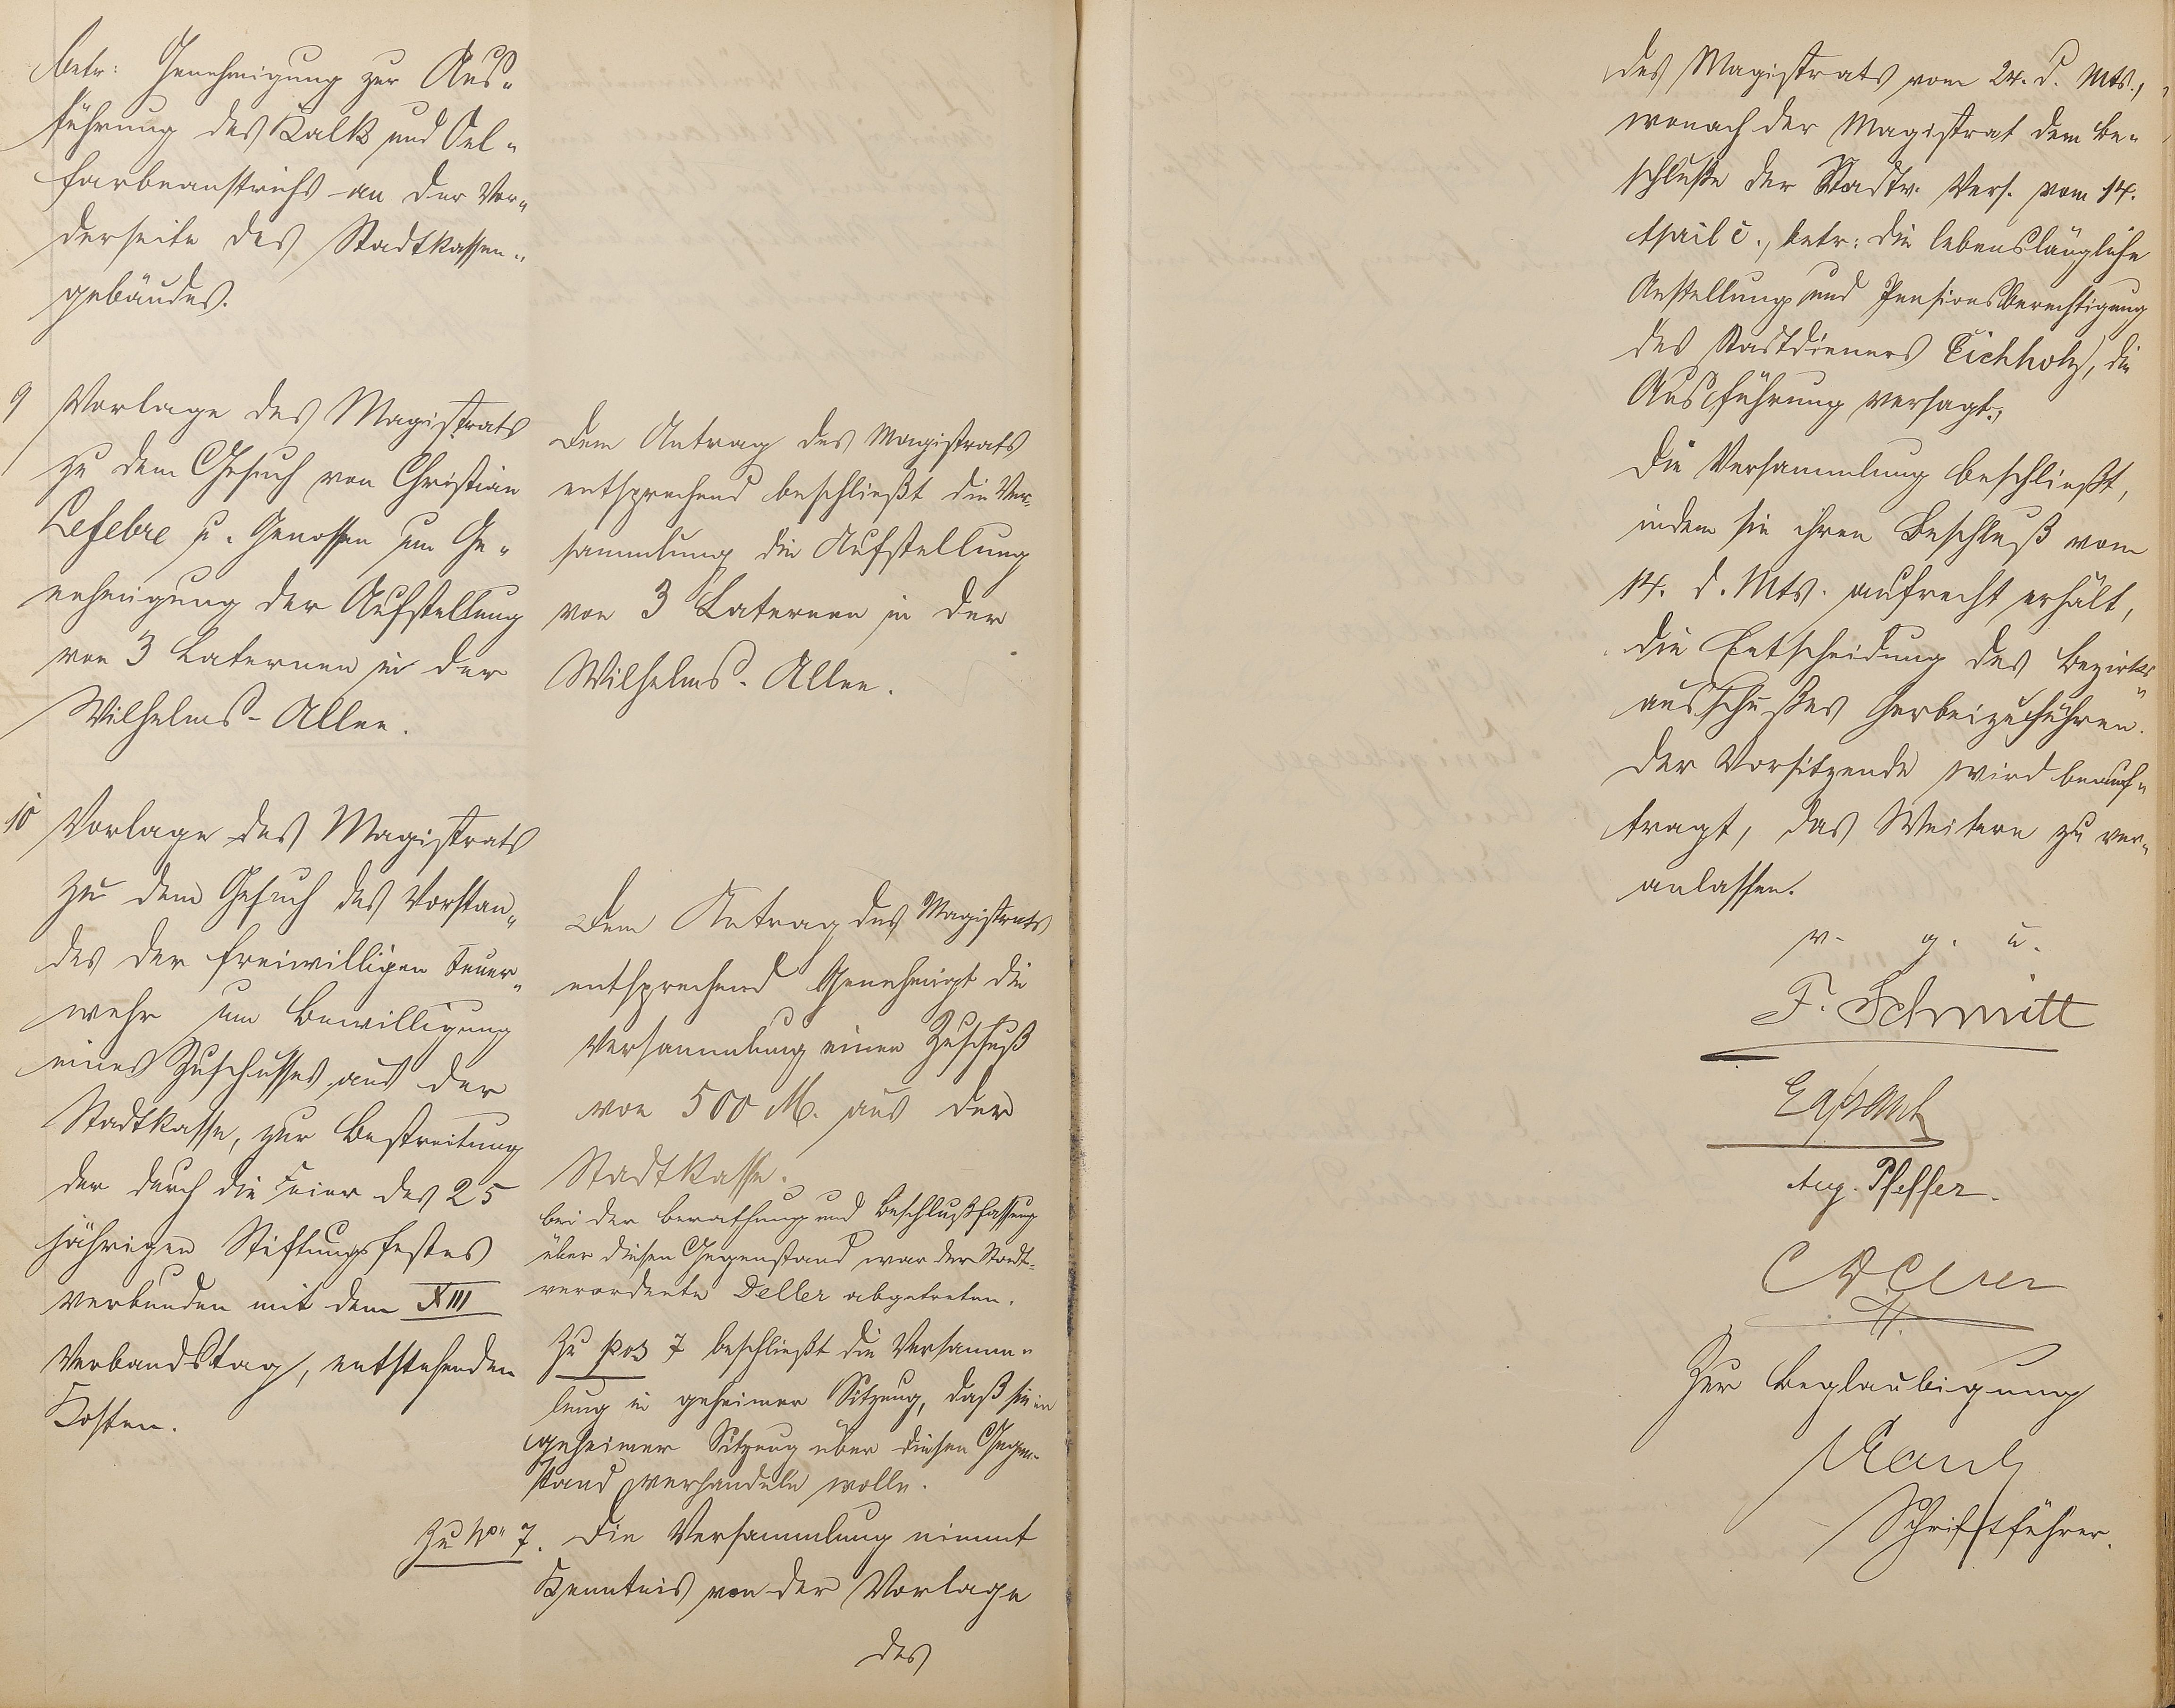 betr: Genehmigung zur Aus-
führung des Kalk und Oel-
farbeanstrichs an der Vor-
derseite des Stadtkassen-
gebäudes.
9 Vorlage des Magistrats
zu dem Gesuch von Christian
Lefebre u. Genossen um Ge-
nehmigung der Aufstellung
von 3 Laternen in der
Wilhelms-Allee.
Dem Antrag des Magistrats
entsprechend beschließt die Ver-
sammlung die Aufstellung
von 3 Laternen in der
Wilhelms-Allee.
10 Vorlage des Magistrats
zu dem Gesuch des Vorstan-
des der freiwilligen Feuer-
wehr um Bewilligung
eines Zuschusses aus der
Stadtkasse, zur Bestreitung
der durch die Feier des 25
jährigen Stiftungsfestes
verbunden mit dem XIII
Verbandstag, entstehenden
Kosten.
Dem Antrag des Magistrats
entsprechend Genehmigt die
Versammlung einen Zuschuß
von 500 M. aus der
Stadtkasse.
bei der Berathung und Beschlußfassung
über diesen Gegenstand war der Stadt-
verordnete Deller abgetreten.
Zu pos 7 beschließt die Versamm-
lung in geheimer Sitzung, daß sie in
geheimer Sitzung über diesen Gegen-
stand verhandeln wolle.
Zu No 7. Die Versammlung nimmt
Kenntnis von der Vorlage
des
des Magistrats vom 24. d. Mts.,
wonach der Magistrat dem Be-
schluße der Stadtv. Vers. vom 14.
April c., betr: die lebenslängliche
Anstellung und Pensionsberechtigung
des Stadtdieners Eichholz, die
Ausführung versagt.
Die Versammlung beschließt,
indem sie ihren Beschluß vom
14. d. Mts. aufrecht erhält,
die Entscheidung des Bezirks-
ausschußes herbeizuführen.
Der Vorsitzende wird beauf-
tragt, das Weitere zu ver-
anlassen.
v. g. u.
F. Schmitt
Aug. Pfeffer.
Zur Beglaubigung
Schriftführer.